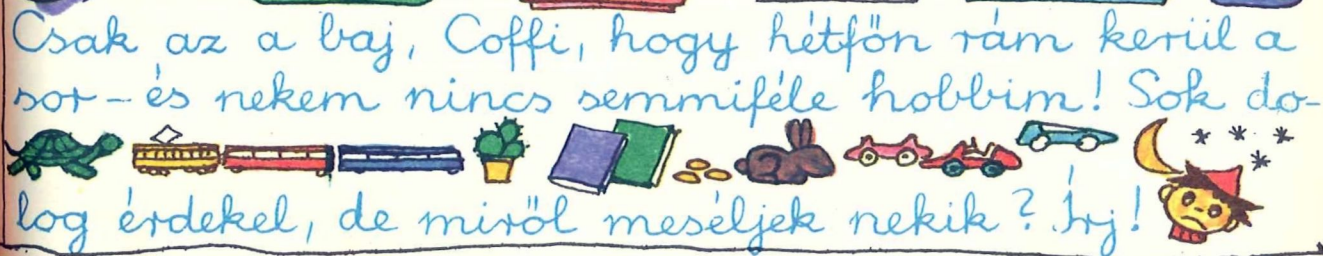 Csak az a baj, Coffi, hogy hétfőn rám kerül a
sor - és nekem nincs semmiféle hobbim! Sok do-
log érdekel, de miről meséljek nekik? Írj!